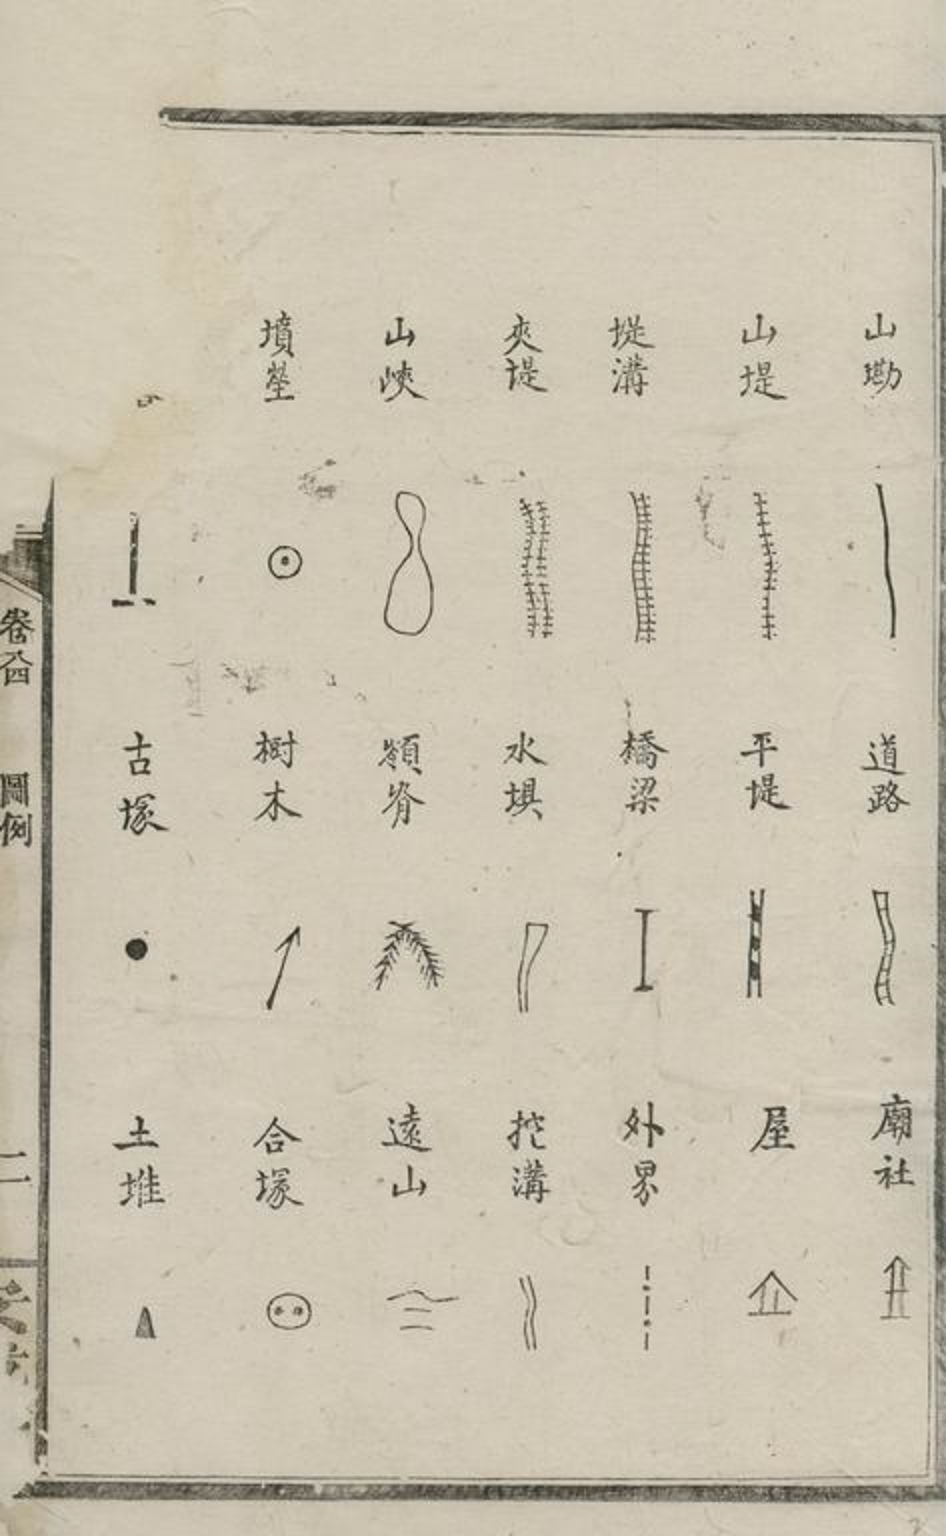 山勘
道路
廟社
山堤
平堤
屋
堤溝
橋梁
外界
夾堤
水埧
挖溝
山峽
嶺脊
遠山
墳塋
樹木
合塚
古塚
土堆
圖例
二